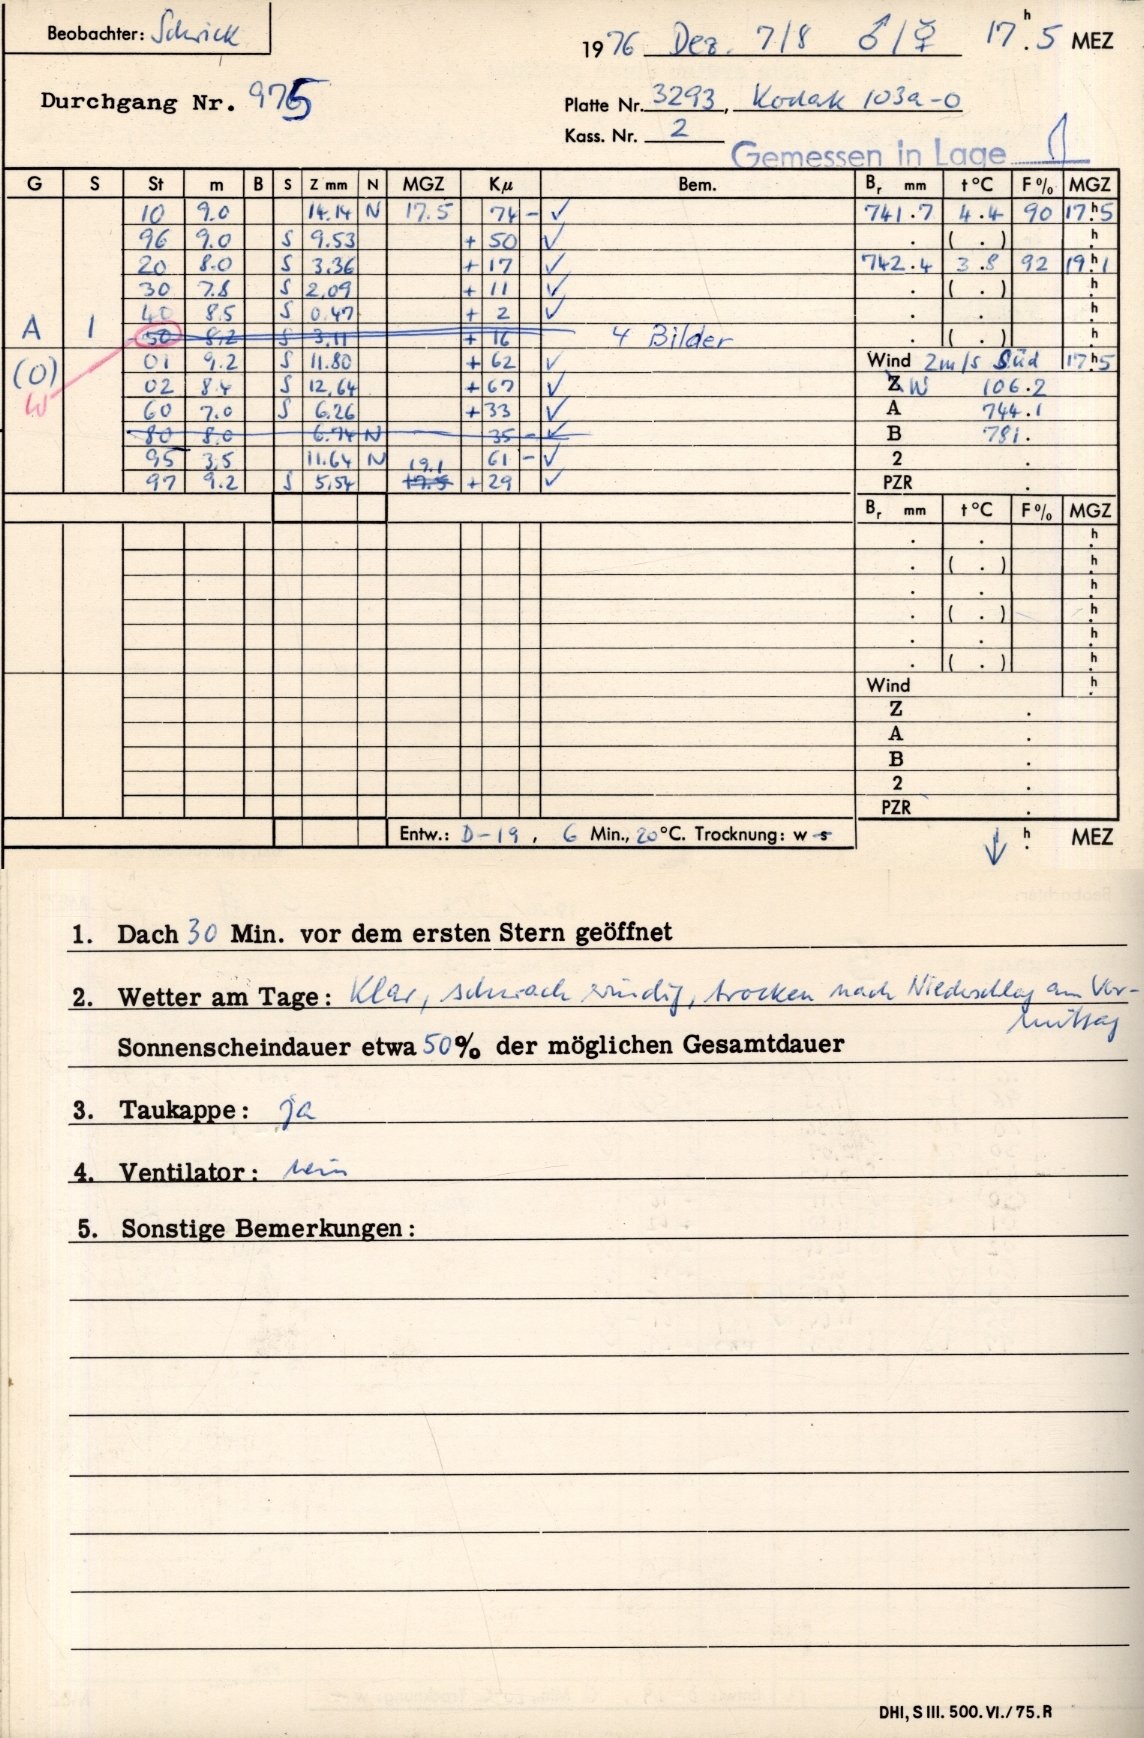 Beobachter: Schrick
1976 Dez. 7/8 ♂/☿ 17h.5 MEZ
Durchgang Nr. 975
Platte Nr. 3293, Kodak 103a-O
Kass. Nr. 2
Gemessen in Lage
G S St m B S Z mm N MGZ Kμ Bem. Br mm t°C F% MGZ
10 9.0 14.14 N 17.5 74 - ✓ 741.7 4.4 90 17h.5
96 9.0 S 9.53 + 50 ✓ . ( . ) h.
20 8.0 S 3.36 + 17 ✓ 742.4 3.8 92 19h.1
30 7.8 S 2.09 + 11 ✓ . ( . ) h.
40 8.5 S 0.47 + 2 ✓ . . h.
A 1 50 8.2 S 3.11 + 16 4 Bilder . ( . ) h.
(0) 01 9.2 S 11.80 + 62 ✓ Wind 2m/s Süd 17h.5
W 02 8.4 S 12.64 + 67 ✓ Z W 106.2
60 7.0 S 6.26 + 33 ✓ A 744.1
80 8.0 6.74 N 35 - ✓ B 781.
95 3.5 11.64 N 61 - ✓ 2 .
97 9.2 S 5.54 17.5 19.1 + 29 ✓ PZR .
Br mm t°C F% MGZ
. . h.
. ( . ) h.
. . h.
. ( . ) h.
. . h.
. ( . ) h.
Wind h.
Z .
A .
B .
2 .
PZR .
Entw.: D-19, 6 Min., 20°C. Trocknung: w s ↓ h. MEZ
1. Dach 30 Min. vor dem ersten Stern geöffnet
2. Wetter am Tage: Klar, schwach windig, trocken nach Niederschlag am Vor-
mittag
Sonnenscheindauer etwa 50% der möglichen Gesamtdauer
3. Taukappe: ja
4. Ventilator: nein
5. Sonstige Bemerkungen:
DHI, S III. 500. VI./75. R